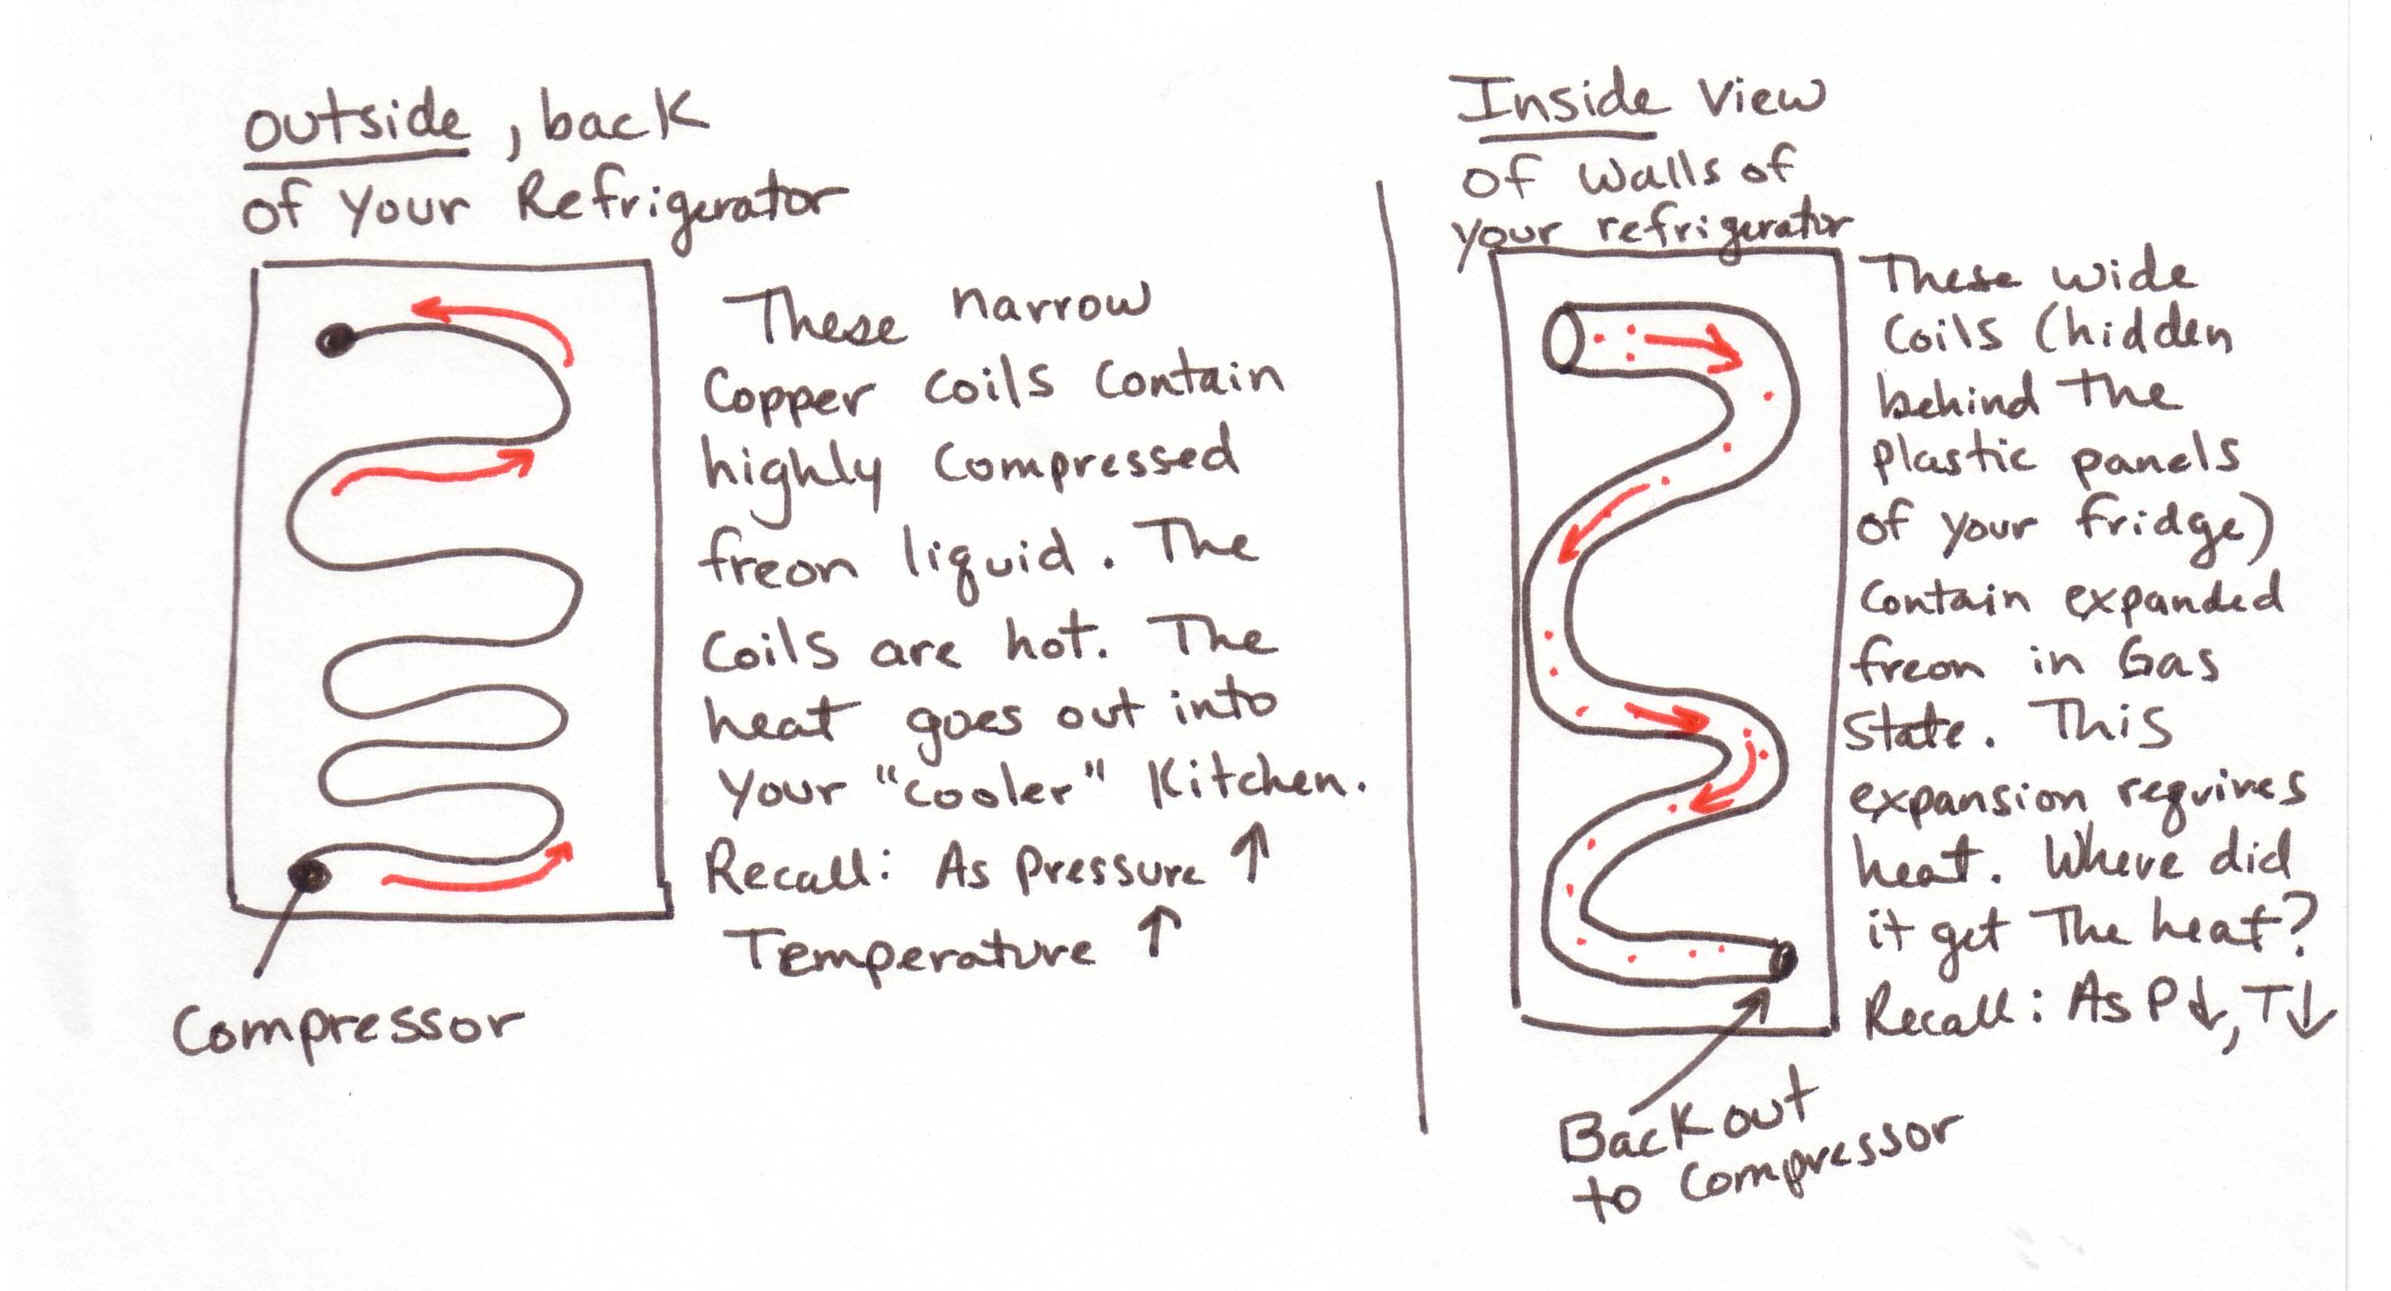 outside, back
of your Refrigerator
These narrow
Copper coils contain
highly compressed
freon liquid. The
coils are hot. The
heat goes out into
your "cooler" Kitchen.
Recall: As pressure ↑
Temperature ↑
Compressor
Inside view
of walls of
your refrigerator
These wide
coils (hidden
behind the
plastic panels
of your fridge)
contain expanded
freon in Gas
state. This
expansion requires
heat. Where did
it get the heat?
Recall: As P↓, T↓
Back out
to compressor